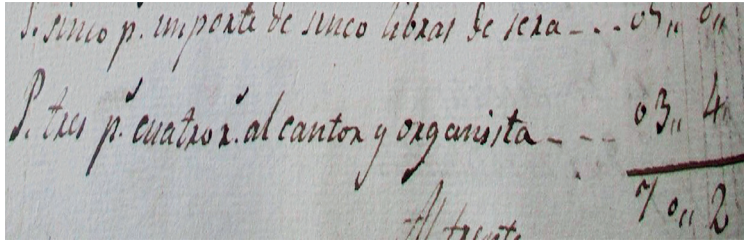 P. sinco p.s importe de sinco libras de sera - - - 05,, 0,,
P. tres p.s cuatro r.s al cantor y organista - - - 03,, 4
70,, 2
Al frente